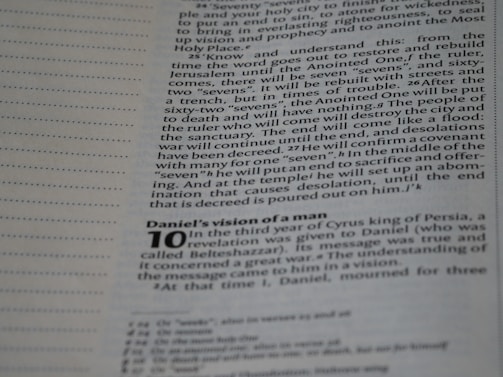 24 "Seventy "sevens"
ple and your holy city to finish
to put an end to sin, to atone for wickedness,
to bring in everlasting righteousness, to seal
up vision and prophecy and to anoint the Most
Holy Place.e
25 "Know and understand this: from the
time the word goes out to restore and rebuild
Jerusalem until the Anointed One,f the ruler,
comes, there will be seven "sevens", and sixty-
two "sevens". It will be rebuilt with streets and
a trench, but in times of trouble. 26 After the
sixty-two "sevens", the Anointed One will be put
to death and will have nothing.g The people of
the ruler who will come will destroy the city and
the sanctuary. The end will come like a flood:
war will continue until the end, and desolations
have been decreed. 27 He will confirm a covenant
with many for one "seven".h In the middle of the
"seven"h he will put an end to sacrifice and offer-
ing. And at the templei he will set up an abom-
ination that causes desolation, until the end
that is decreed is poured out on him.j"k
Daniel's vision of a man
10 In the third year of Cyrus king of Persia, a
revelation was given to Daniel (who was
called Belteshazzar). Its message was true and
it concerned a great war.a The understanding of
the message came to him in a vision.
2 At that time I, Daniel, mourned for three
24 Or "weeks"; also in verses 25 and 26
24 Or restrain
24 Or the most holy One
25 Or an anointed one; also in verse 26
26 Or death and will have no one; or death, but not for himself
27 Or "week"